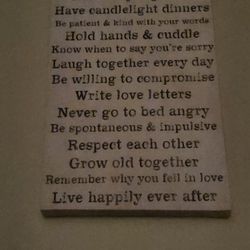 Have candlelight dinners
Be patient & kind with your words
Hold hands & cuddle
Know when to say you're sorry
Laugh together every day
Be willing to compromise
Write love letters
Never go to bed angry
Be spontaneous & impulsive
Respect each other
Grow old together
Remember why you fell in love
Live happily ever after